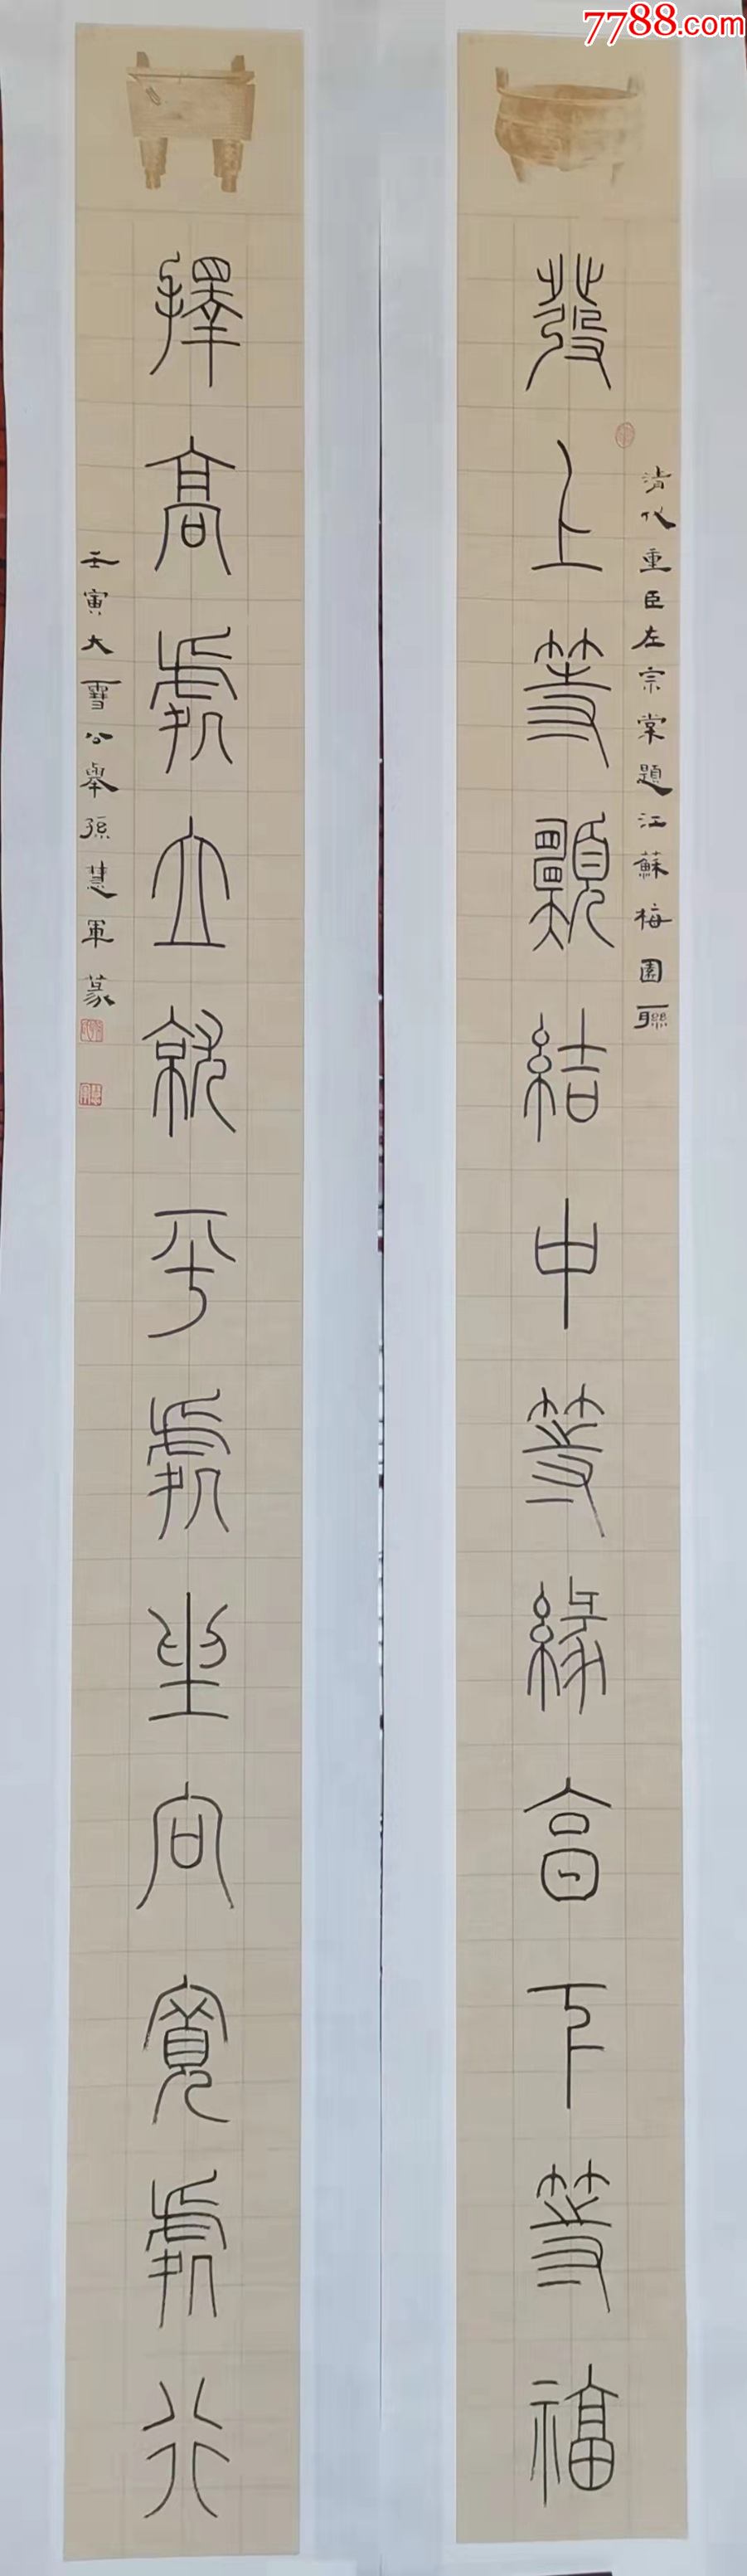 7788.com
發上等願結中等緣享下等福
清代重臣左宗棠題江蘇梅園聯
擇高處立就平處坐向寬處行
壬寅大雪公舉孫慧軍篆